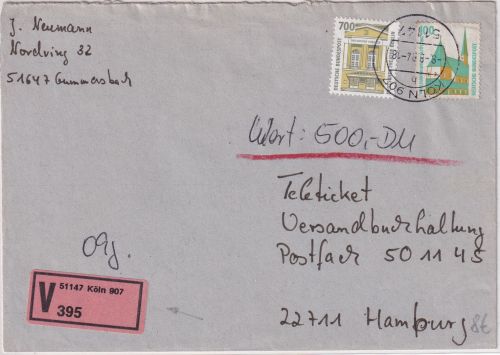 J. Neumann
Nordring 32
51647 Gummersbach
700
DEUTSCHE BUNDESPOST
100
51147
KÖLN 907
Wert: 500,-DM
Teleticket
Versandbuchhaltung
Postfach 50 11 45
22711 Hamburg
8€
V
51147 Köln 907
395